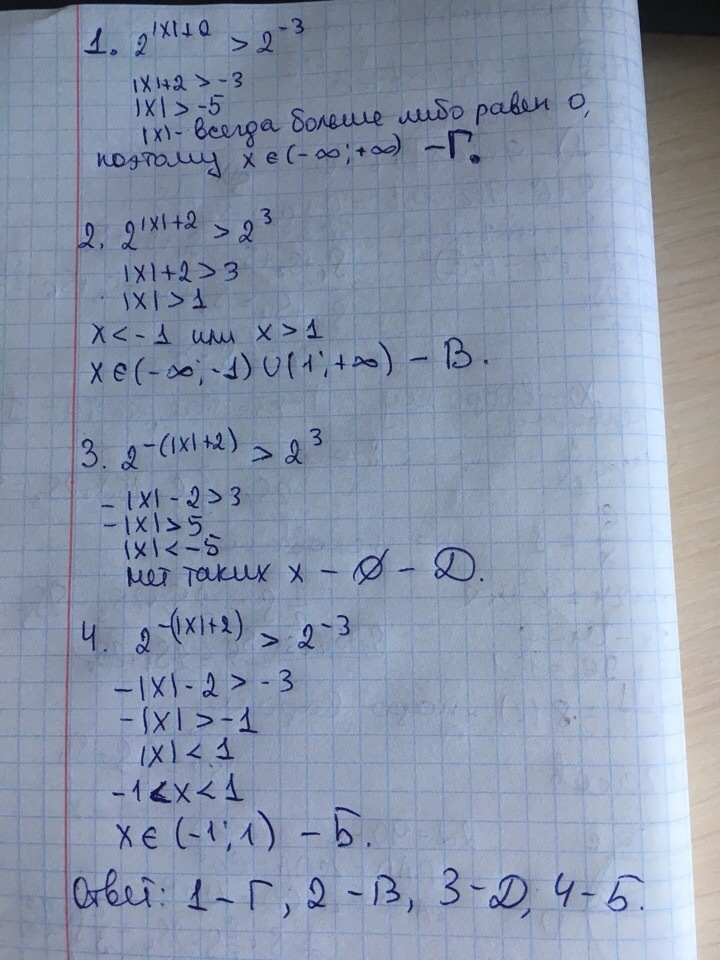 1. 2^(|x|+2) > 2^(-3)
|x|+2 > -3
|x| > -5
|x| - всегда больше либо равен 0,
поэтому x ∈ (-∞; +∞) - Г.
2. 2^(|x|+2) > 2^3
|x|+2 > 3
|x| > 1
x < -1 или x > 1
x ∈ (-∞; -1) ∪ (1; +∞) - В.
3. 2^(-(|x|+2)) > 2^3
-|x| - 2 > 3
-|x| > 5
|x| < -5
нет таких x - ∅ - Д.
4. 2^(-(|x|+2)) > 2^(-3)
-|x| - 2 > -3
-|x| > -1
|x| < 1
-1 < x < 1
x ∈ (-1; 1) - Б.
Ответ: 1 - Г, 2 - В, 3 - Д, 4 - Б.